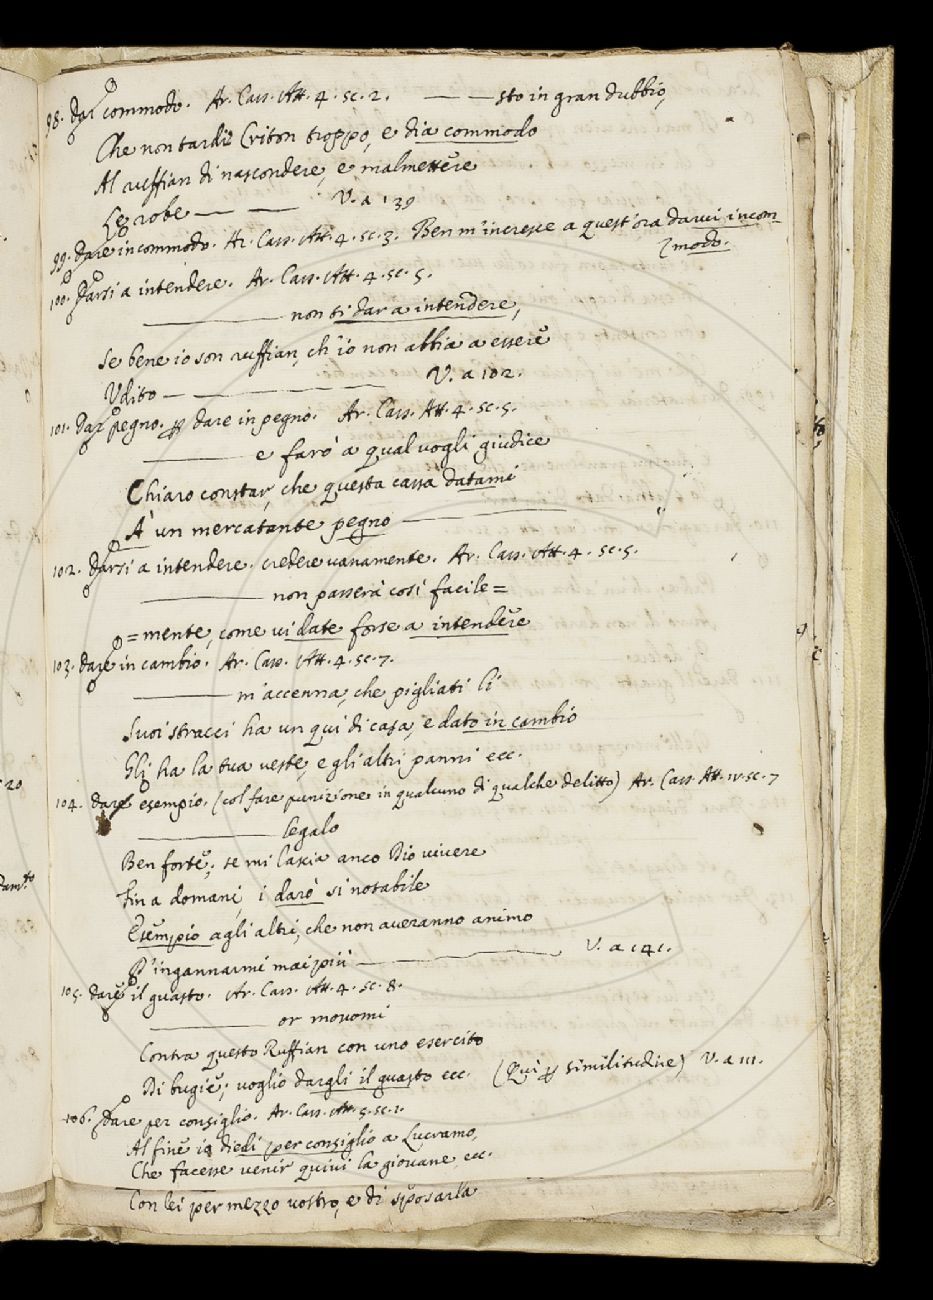 98. Dar commodo. Ar. Cass. Att. 4. sc. 2. — — sto in gran dubbio,
Che non tardi Criton troppo, e dia commodo
Al ruffian di nascondere, e malmettere
Le robe — — V. a 139
99. Dare incommodo. Ar. Cass. Att. 4. sc. 3. Ben m'incresce a quest'ora darvi incom-
modo.
100. Darsi a intendere. Ar. Cass. Att. 4. sc. 5.
— non ti dar a intendere,
Se bene io son ruffian, ch'io non abbia a essere
Udito — — V. a 102.
101. Dar pegno. dare in pegno. Ar. Cass. Att. 4. sc. 5.
— e farò a qual vogli giudice
Chiaro constar, che questa cassa datami
À un mercatante pegno —
102. Darsi a intendere. credere vanamente. Ar. Cass. Att. 4. sc. 5.
— non passerà così facile=
=mente, come vi date forse a intendere
103. Dare in cambio. Ar. Cass. Att. 4. sc. 7.
— m'accenna, che pigliati li
Suoi stracci ha un qui di casa, e dato in cambio
Gli ha la tua veste, e gli altri panni ecc.
20
104. Dare esempio. (col fare punizione in qualcuno di qualche delitto) Ar. Cass. Att. IV. sc. 7
— legalo
Ben forte; se mi lascia anco Dio vivere
Fin a domani, i darò sì notabile
Esempio agli altri, che non averanno animo
D'ingannarmi mai più — V. a 141.
105. Dare il guasto. Ar. Cass. Att. 4. sc. 8.
— or movomi
Contra questo Ruffian con uno esercito
Di bugie; voglio dargli il guasto ecc. (Qui similitudine) V. a 111.
106. Dare per consiglio. Ar. Cass. Att. 5. sc. 1.
Al fine io diedi per consiglio a Lucramo,
Che facesse venir quivi la giovane, ecc.
Con lei per mezzo vostro, e di sposarla